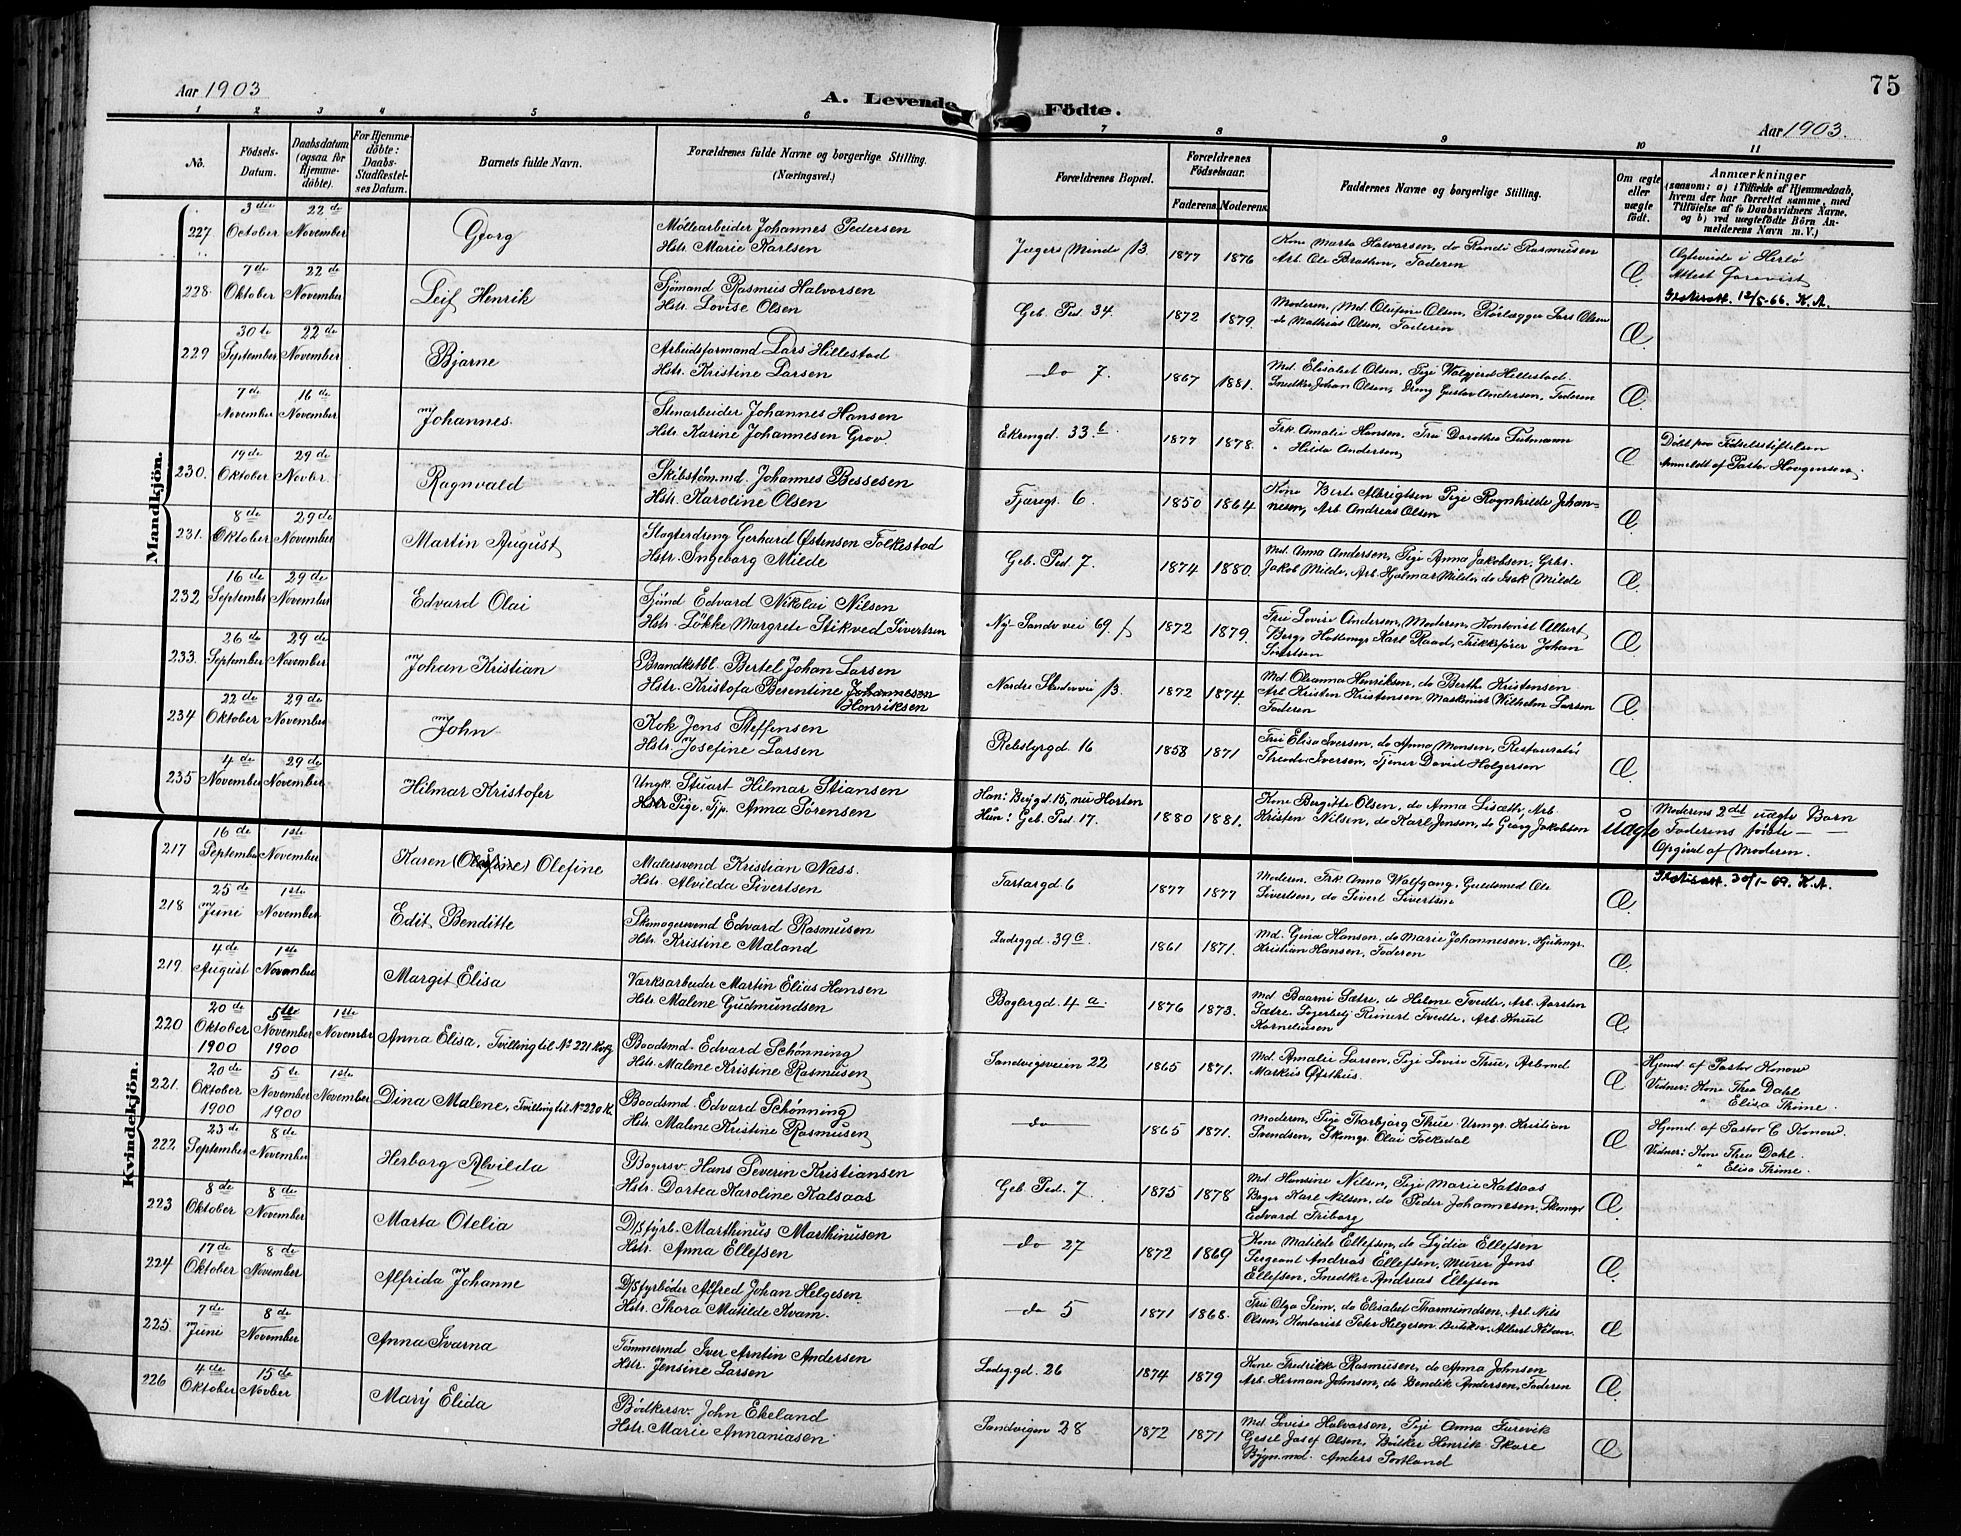 75
Aar 1903
A. Levende Födte.
Aar 1903.
1 2 3 4 5 6 7 8 9 10 11
No.
Födsels-Datum.
Daabsdatum (ogsaa for Hjemmedöbte).
For Hjemmedöbte: Daabs-Stadfæstelses Datum.
Barnets fulde Navn.
Forældrenes fulde Navne og borgerlige Stilling. (Næringsvei.)
Forældrenes Bopæl.
Forældrenes Födselsaar.
Faderens. Moderens.
Faddernes Navne og borgerlige Stilling.
Om ægte eller uægte födt.
Anmærkninger
(saasom: a) i Tilfælde af Hjemmedaab, hvem der har forrettet samme, med Tilföielse af to Daabsvidners Navne, og b) ved uægtefödte Börn Anmelderens Navn m. V.)
Mandkjön.
227. 3die October 22de November Georg
Møllearbeider Johannes Pedersen
Hstr. Marie Karlsen
Jægers Minde 13. 1877 1876
Kone Marta Halvorsen, do Randi Rasmusen
Arb. Ole Brathen, Faderen
Æ.
Attest forevist
228. 7de Oktober 22de November Leif Henrik
Sjömand Rasmus Halvorsen
Hstr. Lovise Olsen
Geb. Ped. 34. 1872 1879.
Moderen, Md. Olufine Olsen, Rörlægger Lars Olsen
do Mathias Olsen, Faderen
Æ.
12/5-66. K.A.
229 30te September 22de November Bjarne
Arbeidsformand Lars Hillestad
Hstr. Kristine Larsen
do 7. 1867 1881.
Md. Elisabet Olsen, Pige Hillestad
Snedker Johan Olsen, Dreng Gustav Andersen, Faderen
Æ.
7de November 16de November Johannes
Stenarbeider Johannes Hansen
Hstr. Karine Johannesen Grov
Ekrengd. 33 b 1877 1878.
Frk. Amalie Hansen, Fru Dorothea
" Hilda Andersen
Æ
Døbt paa Fødselsstiftelsen
Anmeldt af Pastor Haagensen
230. 19de Oktober 29de Novbr. Ragnvald
Skibstøm.md. Johannes Bessesen
Hstr. Karoline Olsen
Fjæregt. 6. 1850 1864
Kone Berte Albrigtsen Pige Ragnhilde Johannesen, Arb. Andreas Olsen
Æ.
231. 8de Oktober 29de November Martin August
Slagterdreng Gerhard Østensen Folkestad
Hstr. Ingeborg Milde
Geb. Ped. 7. 1874 1880.
Md. Anna Andersen, Pige Anna Jakobsen, Grbs.
Jakob Milde, Arb. Hjalmar Milde, do Isak Milde
Æ.
232 16de September 29de November Edvard Olai
Sjömd Edvard Nikolai Nilsen
Hstr. Løkke Margrete Stikved Sivertsen
Ny Sandv. vei 69. f 1872 1879.
Frk Lovise Andersen, Moderen, Kontorist Albert
Berge Karl Raad, Johan
Sivertsen
Æ.
233. 26de September 29de November Johan Kristian
Brandkstbl. Bertel Johan Larsen
Hstr. Kristofa Berentine Johannesen Henriksen
Nordre Skudevei 13. 1872 1874.
Md. Oleanna Henriksen, do Berthe Kristensen
Arb. Kristen Kristensen, Maskinist Wilhelm Larsen
Faderen
Æ.
234 22de Oktober 29de November John
Kok Jens Steffensen
Hstr. Josefine Larsen
Rebslyrgd. 16 1858 1871
Fru Elisa Iversen, do Anna Monsen, Restauratør
Theodor Iversen, Tjener David Holgersen
Æ.
235 4de November 29de November Hilmar Kristofer
Ungk. Stuart Hilmar Stiansen
Pige, Tjp. Anna Sørensen
Han: Beygd. 15, nu Horten
Hun: Geb. Ped. 17. 1880 1881.
Kone Bergitte Olsen, do Anna Lisæth, Arb.
Kristen Nilsen, do Karl Jensen, do Georg Jakobsen
Uægte
Moderens 2det uægte Barn
Faderens første —
Opgivet af Moderen.
30/1-69. K.A.
Kvindekjön.
217 16de September 1ste November Karen (Olufine) Olefine
Malersvend Kristian Næss.
Hstr. Alvilda Sivertsen
Tartargd. 6 1877 1877
Moderen, Frk. Anna Wolfgang, Guldsmed Ole
Sivertsen, do Sivert Sivertsen
Æ.
218 25de Juni 1ste November Edit Benditte
Skomagersvend Edvard Rasmusen
Hstr. Kristine Mæland
Ladeggd. 39 c. 1861 1871.
Md. Gina Hansen, do Marie Johannesen, Hjulmgr.
Kristian Hansen, Faderen
Æ.
219. 4de August 1ste November Margit Elisa
Værksarbeider Martin Elias Hansen
Hstr. Malene Gudmundsen
Baglergd. 4 a. 1876 1873.
Md. Baarni Sætre, do Helene Tvedte, Arb. Aarsten
Sætre, Reinert Tvedte, Arb. Knud
Korneliusen
Æ.
220 20de Oktober 1900 5te November 1900 1ste November Anna Elisa, Tvilling til No 221 Kv.
Baadsmd. Edvard Schønning
Hstr. Malene Kristine Rasmusen
Sandvigsveien 22 1865 1871.
Md. Amalie Larsen, Pige Lovise Thue,
Markus Øfsthus.
Æ
Hjemd. af Pastor Konow
Vidner: Kone Thea Dahl
" Elisa Thime.
221. 20de Oktober 1900 5te November 1900 1ste November Dina Malene, Tvilling til No 220 K.
Baadsmd. Edvard Schønning
Hstr. Malene Kristine Rasmusen
do 1865 1871.
Moderen, Pige Thorbjørg Thue Urmgr. Kristian
Svendsen, Skomgr. Olai Folkedal
Æ
Hjemd. af Pastor C. Konow.
Vidner: Kone Thea Dahl.
" Elisa Thime.
222. 23de September 8de November Herborg Alvilda
Bagersv. Hans Severin Kristiansen
Hstr. Dortea Karoline Kalsaas
Geb. Ped. 7. 1875 1878
Md. Hansine Nilsen, Pige Marie Kalsaas
Bager Karl Nilsen, do Peder Johannesen, Skomgr
Edvard Friborg
Æ.
223 8de Oktober 8de November Marta Otelia
D/s fyrb. Marthinus Marthinusen
Hstr. Anna Ellefsen
do 27 1872 1869
Kone Matilde Ellefsen, do Lydia Ellefsen
Sergeant Andreas Ellefsen, Murer Jens
Ellefsen, Snedker Andreas Ellefsen
Æ.
224 17de Oktober 8de November Alfrida Johanne
D/s fyrbøder Alfred Johan Helgesen
Hstr. Thora Matilde Kvam.
do 5 1871 1868.
Fru Olga Seim, do Elisabet Thormundsen, Arb. Nils
Olsen, Kontorist Peter Helgesen Albert Nilsen
Æ
225. 7de Juni 8de November Anna Ivarna
Tømmermd Iver Arntin Andersen
Hstr. Jensine Larsen
Ladeg.gd. 26 1874 1879
Kone Fredrikke Rasmusen, do Anna Johnsen
Arb. Herman Johnsen, do Bendik Andersen, Faderen
Æ.
226 4de Oktober 15de Novber Mary Elida
Bødkersv. John Ekeland
Hstr. Marie Annaniasen
Sandvigen 28 1872 1871
Md. Lovise Halvorsen, Pige Anna Furevik
Gesel Josef Olsen, Bødker Henrik Skare
Bygn.md. Anders Sortland
Æ.